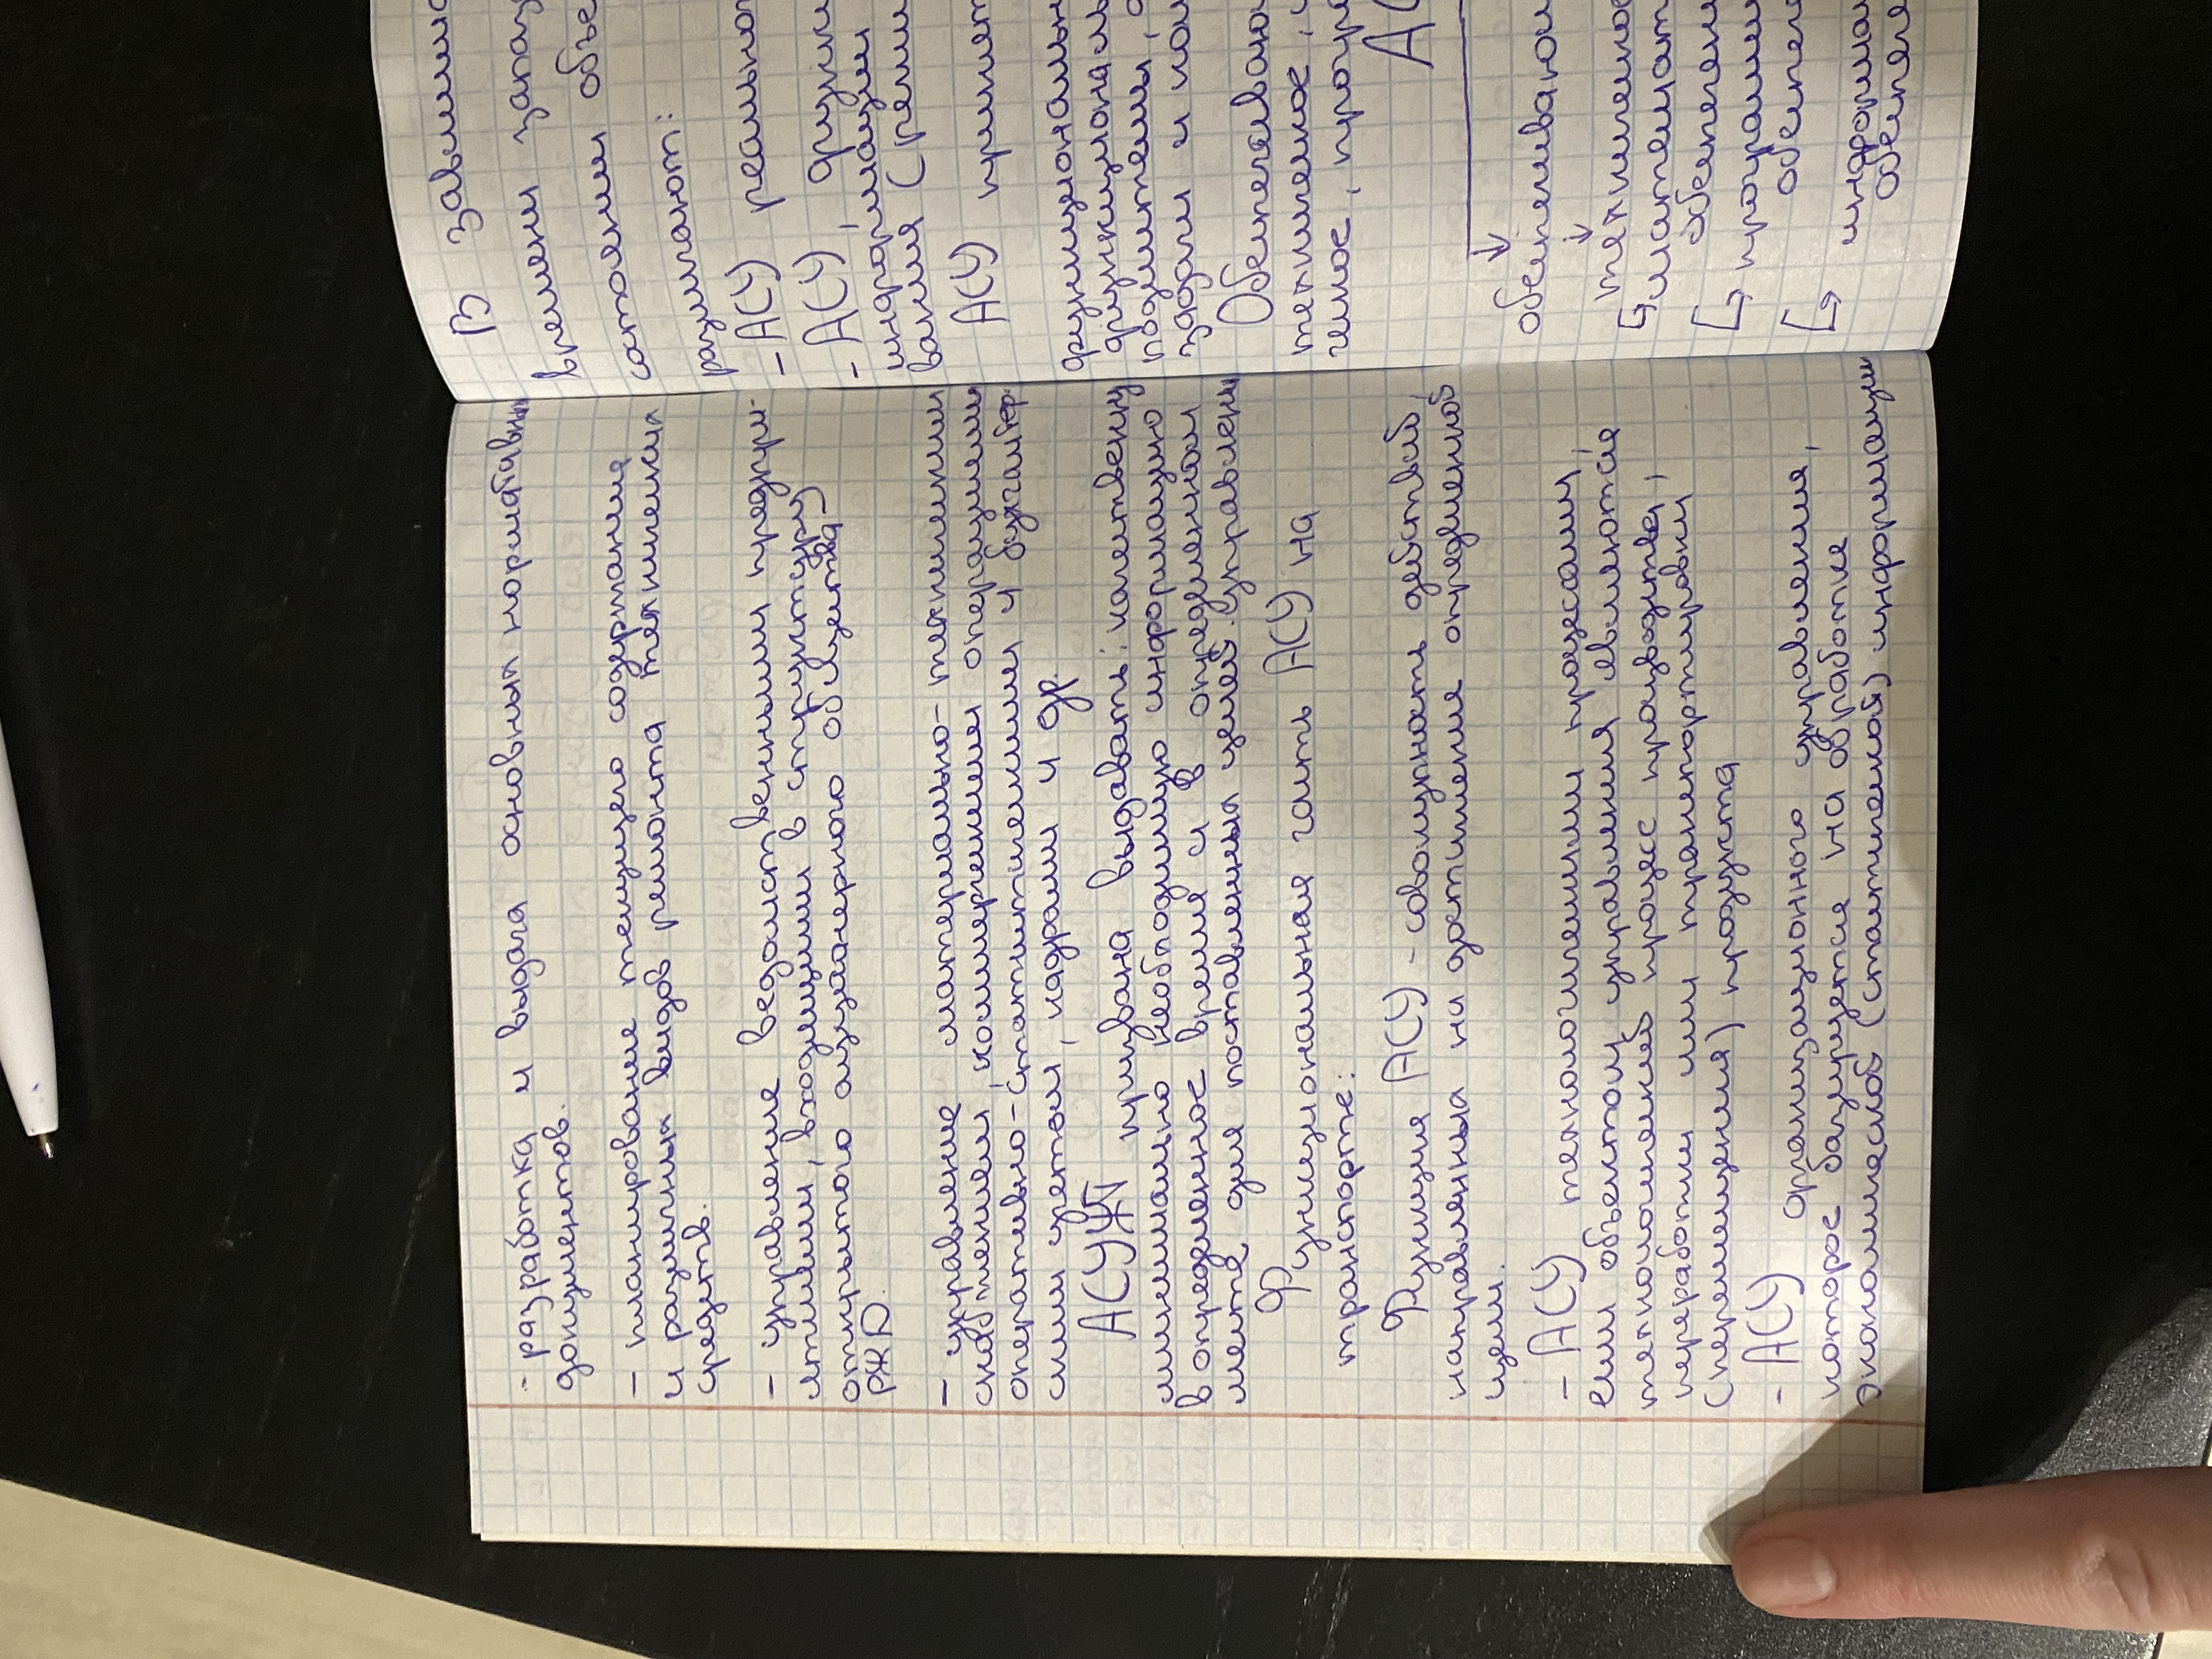 - разработка и выдача основных нормативных
документов.
- планирование текущего содержания
и различных видов ремонта технических
средств.
- управление ведомственными предпри-
ятиями, входящими в структуру
открытого акционерного общества
РЖД.
- управление материально-техническим
снабжением, коммерческими операциями
оперативно-статистическим и бухгалтер-
ским учетом, кадрами и др.
АСУЖТ призвана выдавать: качественную
минимально необходимую информацию
в определенное время и в определенном
месте для поставленных целей управления
Функциональная часть АСУ на
транспорте:
Функция АСУ - совокупность действий,
направленных на достижение определенной
цели.
- АСУ технологическими процессами,
ими объектом управления является
технологический процесс производства,
переработки или транспортировки
(перемещения) продукта
- АСУ организационного управления,
которое базируется на обработке
экономической (статической) информации
В зависимо
времени запазд
состоянии объе
различают:
- АСУ реально
- АСУ, функци
информации
вания (реши
АСУ принят
функциональн
функциональ
подсистемы,
задачи и ком
Обеспечиваю
техническое,
ческое, прогр
АС
обеспечиваю
техническо
математ
обеспечени
программ
обеспече
информац
обеспече